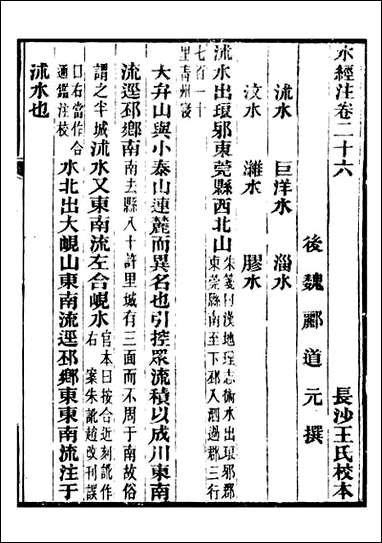 水經注卷二十六 長沙王氏校本
後魏酈道元撰
沭水 巨洋水 淄水
汶水 濰水 膠水
沭水出琅邪東莞縣西北山 朱箋曰漢地理志術水出琅邪郡
東莞縣南至下邳入泗過郡三行
七百一十
里青州寖
大弁山與小泰山連麓而異名也引控眾流積以成川東南
流逕邳鄉南南去縣八十許里城有三面而不周于南故俗
謂之半城沭水又東南流左合峴水 官本曰按合近刻訛作
右 案朱訛趙改刊誤
曰右當作合
通鑑注校
水北出大峴山東南流逕邳鄉東東南流注于
沭水也